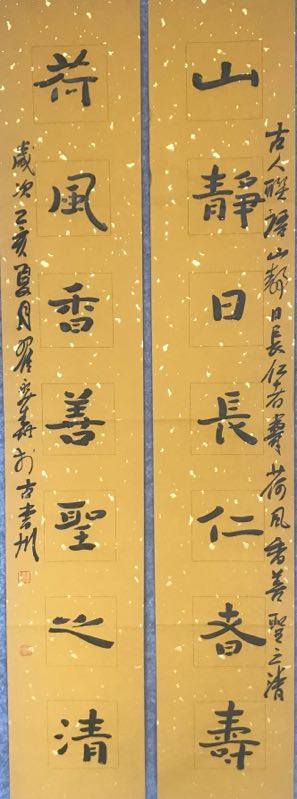 古人聯語山靜日長仁者壽荷風香善聖之清
山靜日長仁者壽
荷風香善聖之清
歲次己亥夏月翟
於古青州